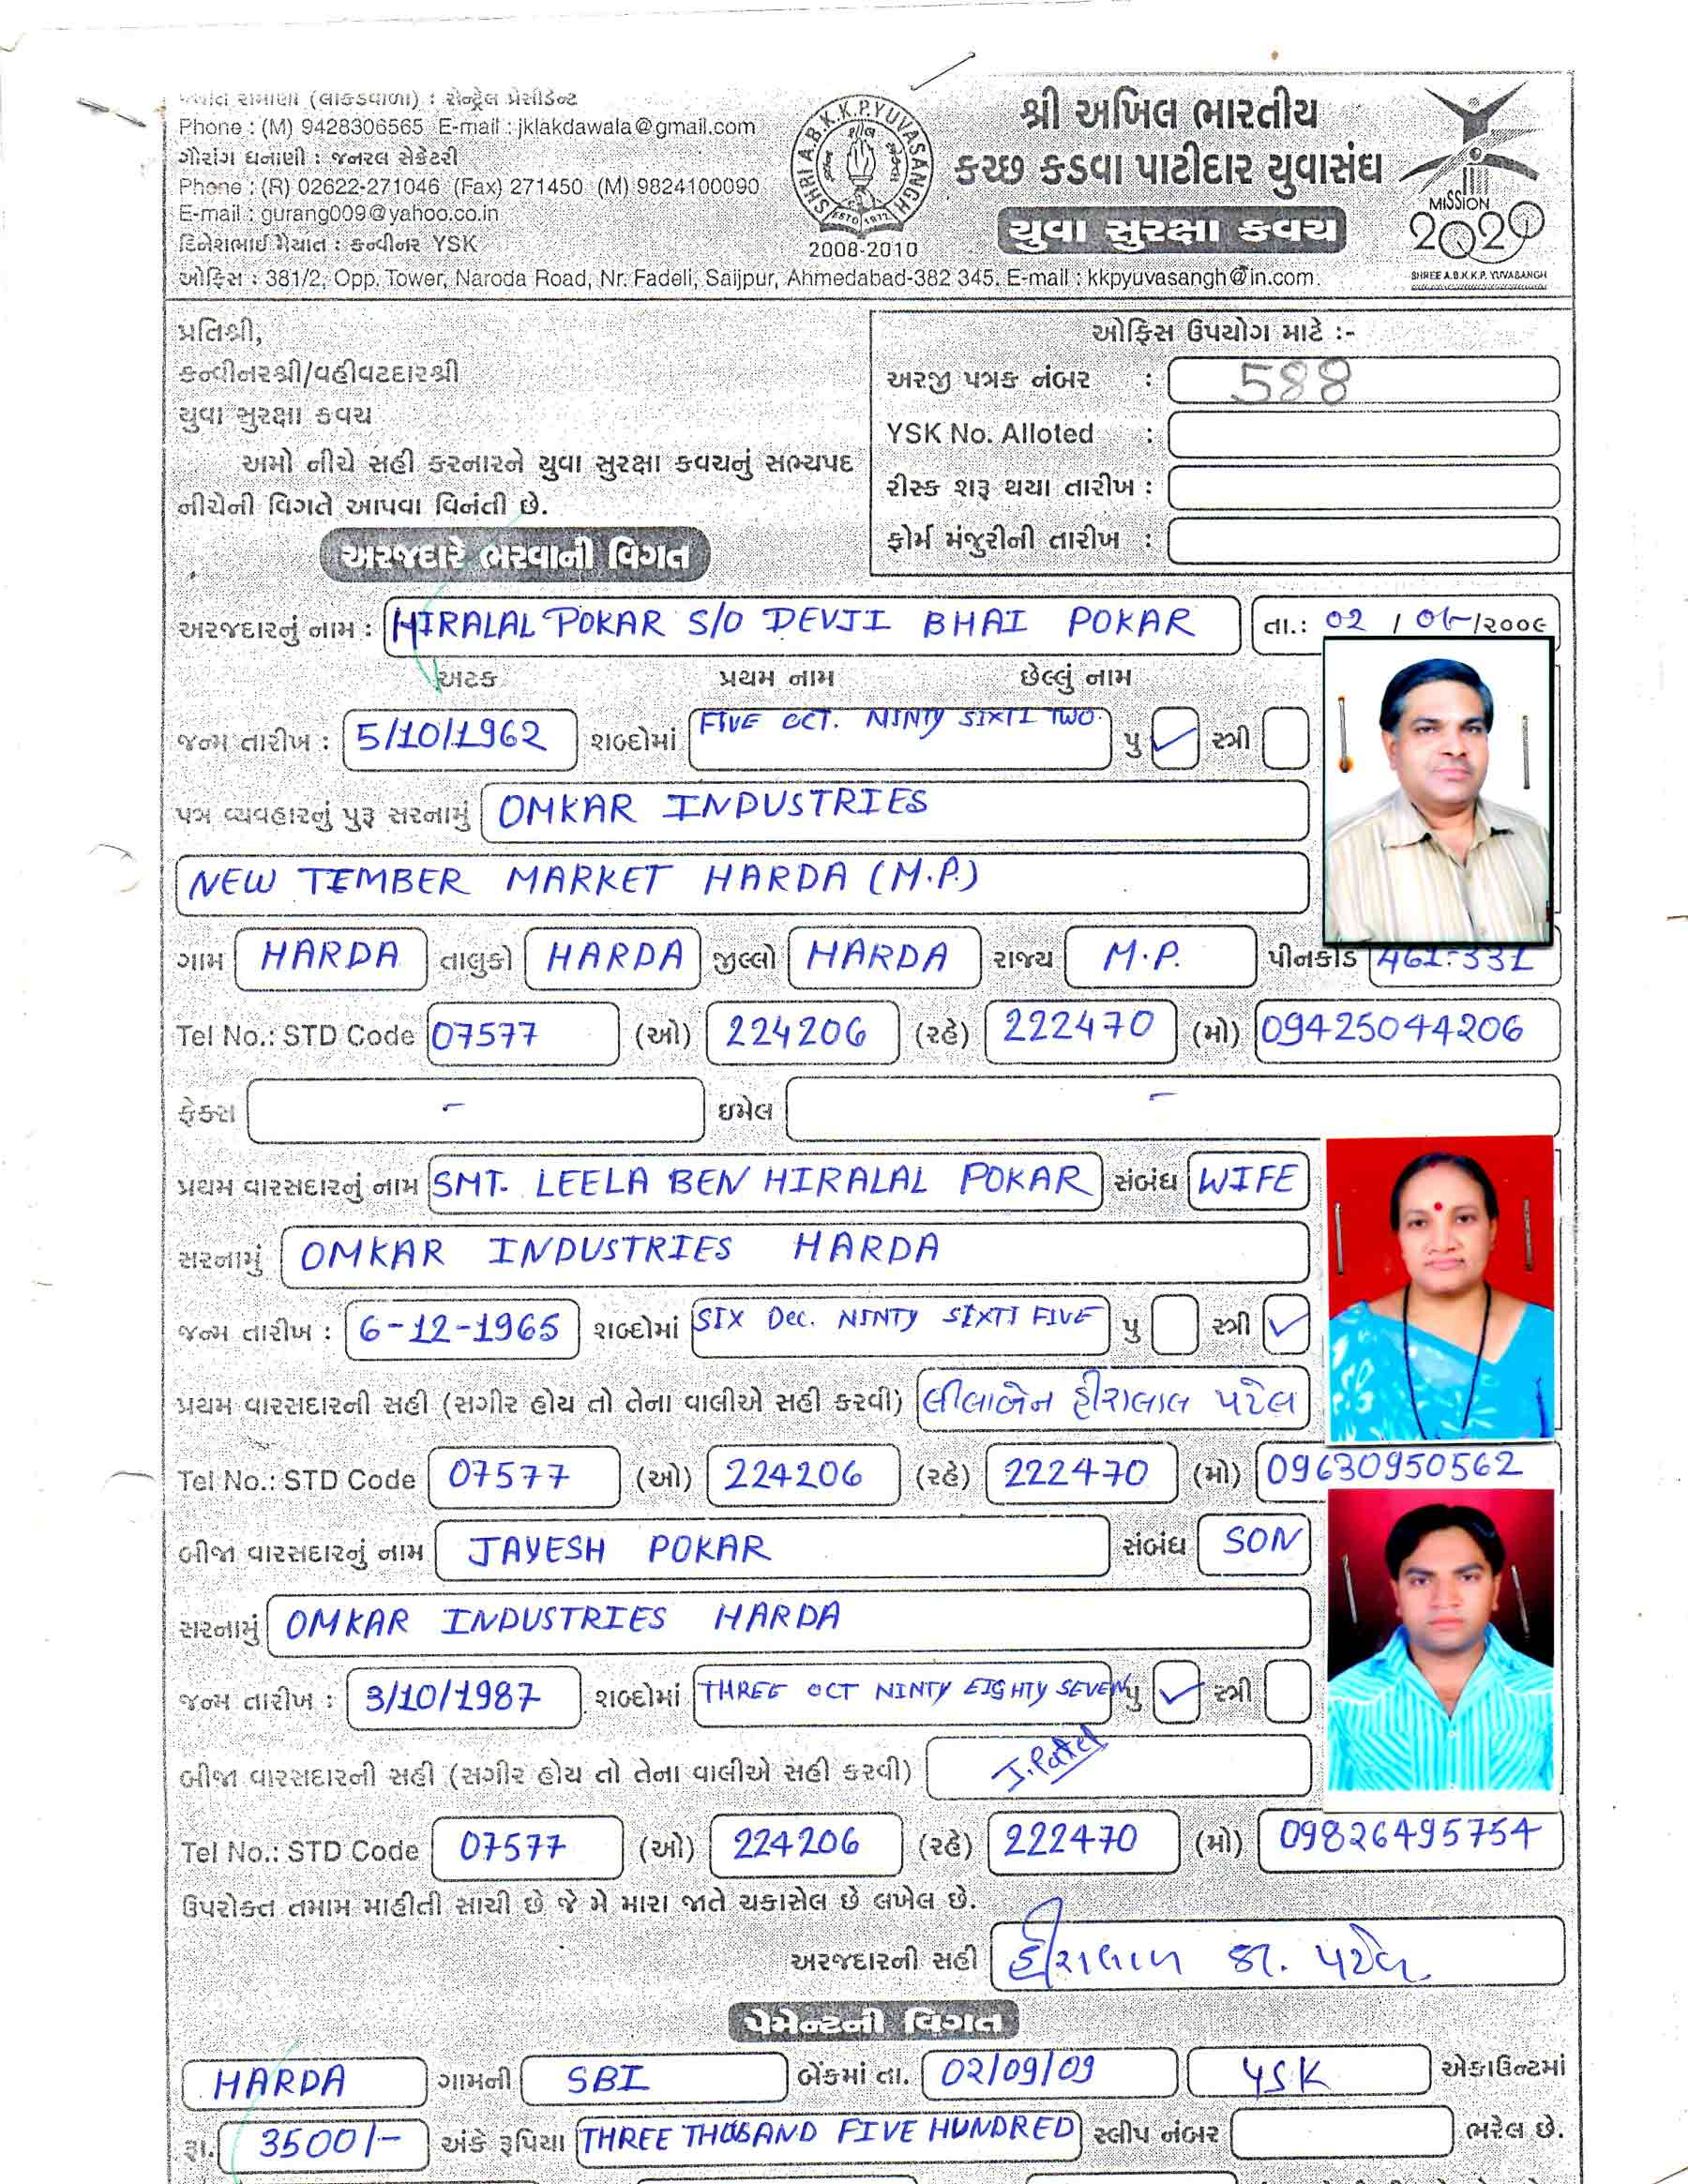 (લાકડાવાળા) : સેન્ટ્રેલ પ્રેસીડેન્ટ
Phone : (M) 9428306565 E-mail : jklakdawala@gmail.com
ગૌરાંગ ધનાણી : જનરલ સેક્રેટરી
Phone : (R) 02622-271046 (Fax) 271450 (M) 9824100090
E-mail : gurang009@yahoo.co.in
દિનેશભાઈ મૈયાત : કન્વીનર YSK
SHRI A.B.K.K.P. YUVASANGH
ESTD 1972
2008-2010
શ્રી અખિલ ભારતીય
કચ્છ કડવા પાટીદાર યુવાસંઘ
યુવા સુરક્ષા કવચ
MISSION
2020
SHREE A.B.K.K.P. YUVASANGH
ઓફિસ : 381/2, Opp. Tower, Naroda Road, Nr. Fadeli, Saijpur, Ahmedabad-382 345. E-mail : kkpyuvasangh@in.com.
પ્રતિશ્રી,
કન્વીનરશ્રી/વહીવટદારશ્રી
યુવા સુરક્ષા કવચ
અમો નીચે સહી કરનારને યુવા સુરક્ષા કવચનું સભ્યપદ
નીચેની વિગતે આપવા વિનંતી છે.
ઓફિસ ઉપયોગ માટે :-
અરજી પત્રક નંબર : 588
YSK No. Alloted :
રીસ્ક શરૂ થયા તારીખ :
ફોર્મ મંજુરીની તારીખ :
અરજદારે ભરવાની વિગત
અરજદારનું નામ : HIRALAL POKAR S/O DEVJI BHAI POKAR તા.: 02 / /૨૦૦૯
અટક પ્રથમ નામ છેલ્લું નામ
જન્મ તારીખ : 5/10/1962 શબ્દોમાં FIVE OCT. NINTY SIXTI TWO. પુ ✓ સ્ત્રી
પત્ર વ્યવહારનું પુરૂ સરનામું OMKAR INDUSTRIES
NEW TEMBER MARKET HARDA (M.P.)
ગામ HARDA તાલુકો HARDA જીલ્લો HARDA રાજ્ય M.P. પીનકોડ 461-331
Tel No.: STD Code 07577 (ઓ) 224206 (રહે) 222470 (મો) 09425044206
ફેક્સ - ઇમેલ -
પ્રથમ વારસદારનું નામ SMT. LEELA BEN HIRALAL POKAR સંબંધ WIFE
સરનામું OMKAR INDUSTRIES HARDA
જન્મ તારીખ : 6-12-1965 શબ્દોમાં SIX Dec. NINTY SIXTI FIVE પુ સ્ત્રી ✓
પ્રથમ વારસદારની સહી (સગીર હોય તો તેના વાલીએ સહી કરવી) લીલાબેન હીરાલાલ પટેલ
Tel No.: STD Code 07577 (ઓ) 224206 (રહે) 222470 (મો) 09630950562
બીજા વારસદારનું નામ JAYESH POKAR સંબંધ SON
સરનામું OMKAR INDUSTRIES HARDA
જન્મ તારીખ : 3/10/1987 શબ્દોમાં THREE OCT NINTY EIGHTY SEVEN પુ ✓ સ્ત્રી
બીજા વારસદારની સહી (સગીર હોય તો તેના વાલીએ સહી કરવી) J. Patel
Tel No.: STD Code 07577 (ઓ) 224206 (રહે) 222470 (મો) 09826495754
ઉપરોક્ત તમામ માહીતી સાચી છે જે મે મારા જાતે ચકાસેલ છે લખેલ છે.
અરજદારની સહી હીરાલાલ ડા. પટેલ
પેમેન્ટની વિગત
HARDA ગામની SBI બેંકમાં તા. 02/09/09 YSK એકાઉન્ટમાં
રૂા. 3500/- અંકે રૂપિયા THREE THOUSAND FIVE HUNDRED સ્લીપ નંબર ભરેલ છે.